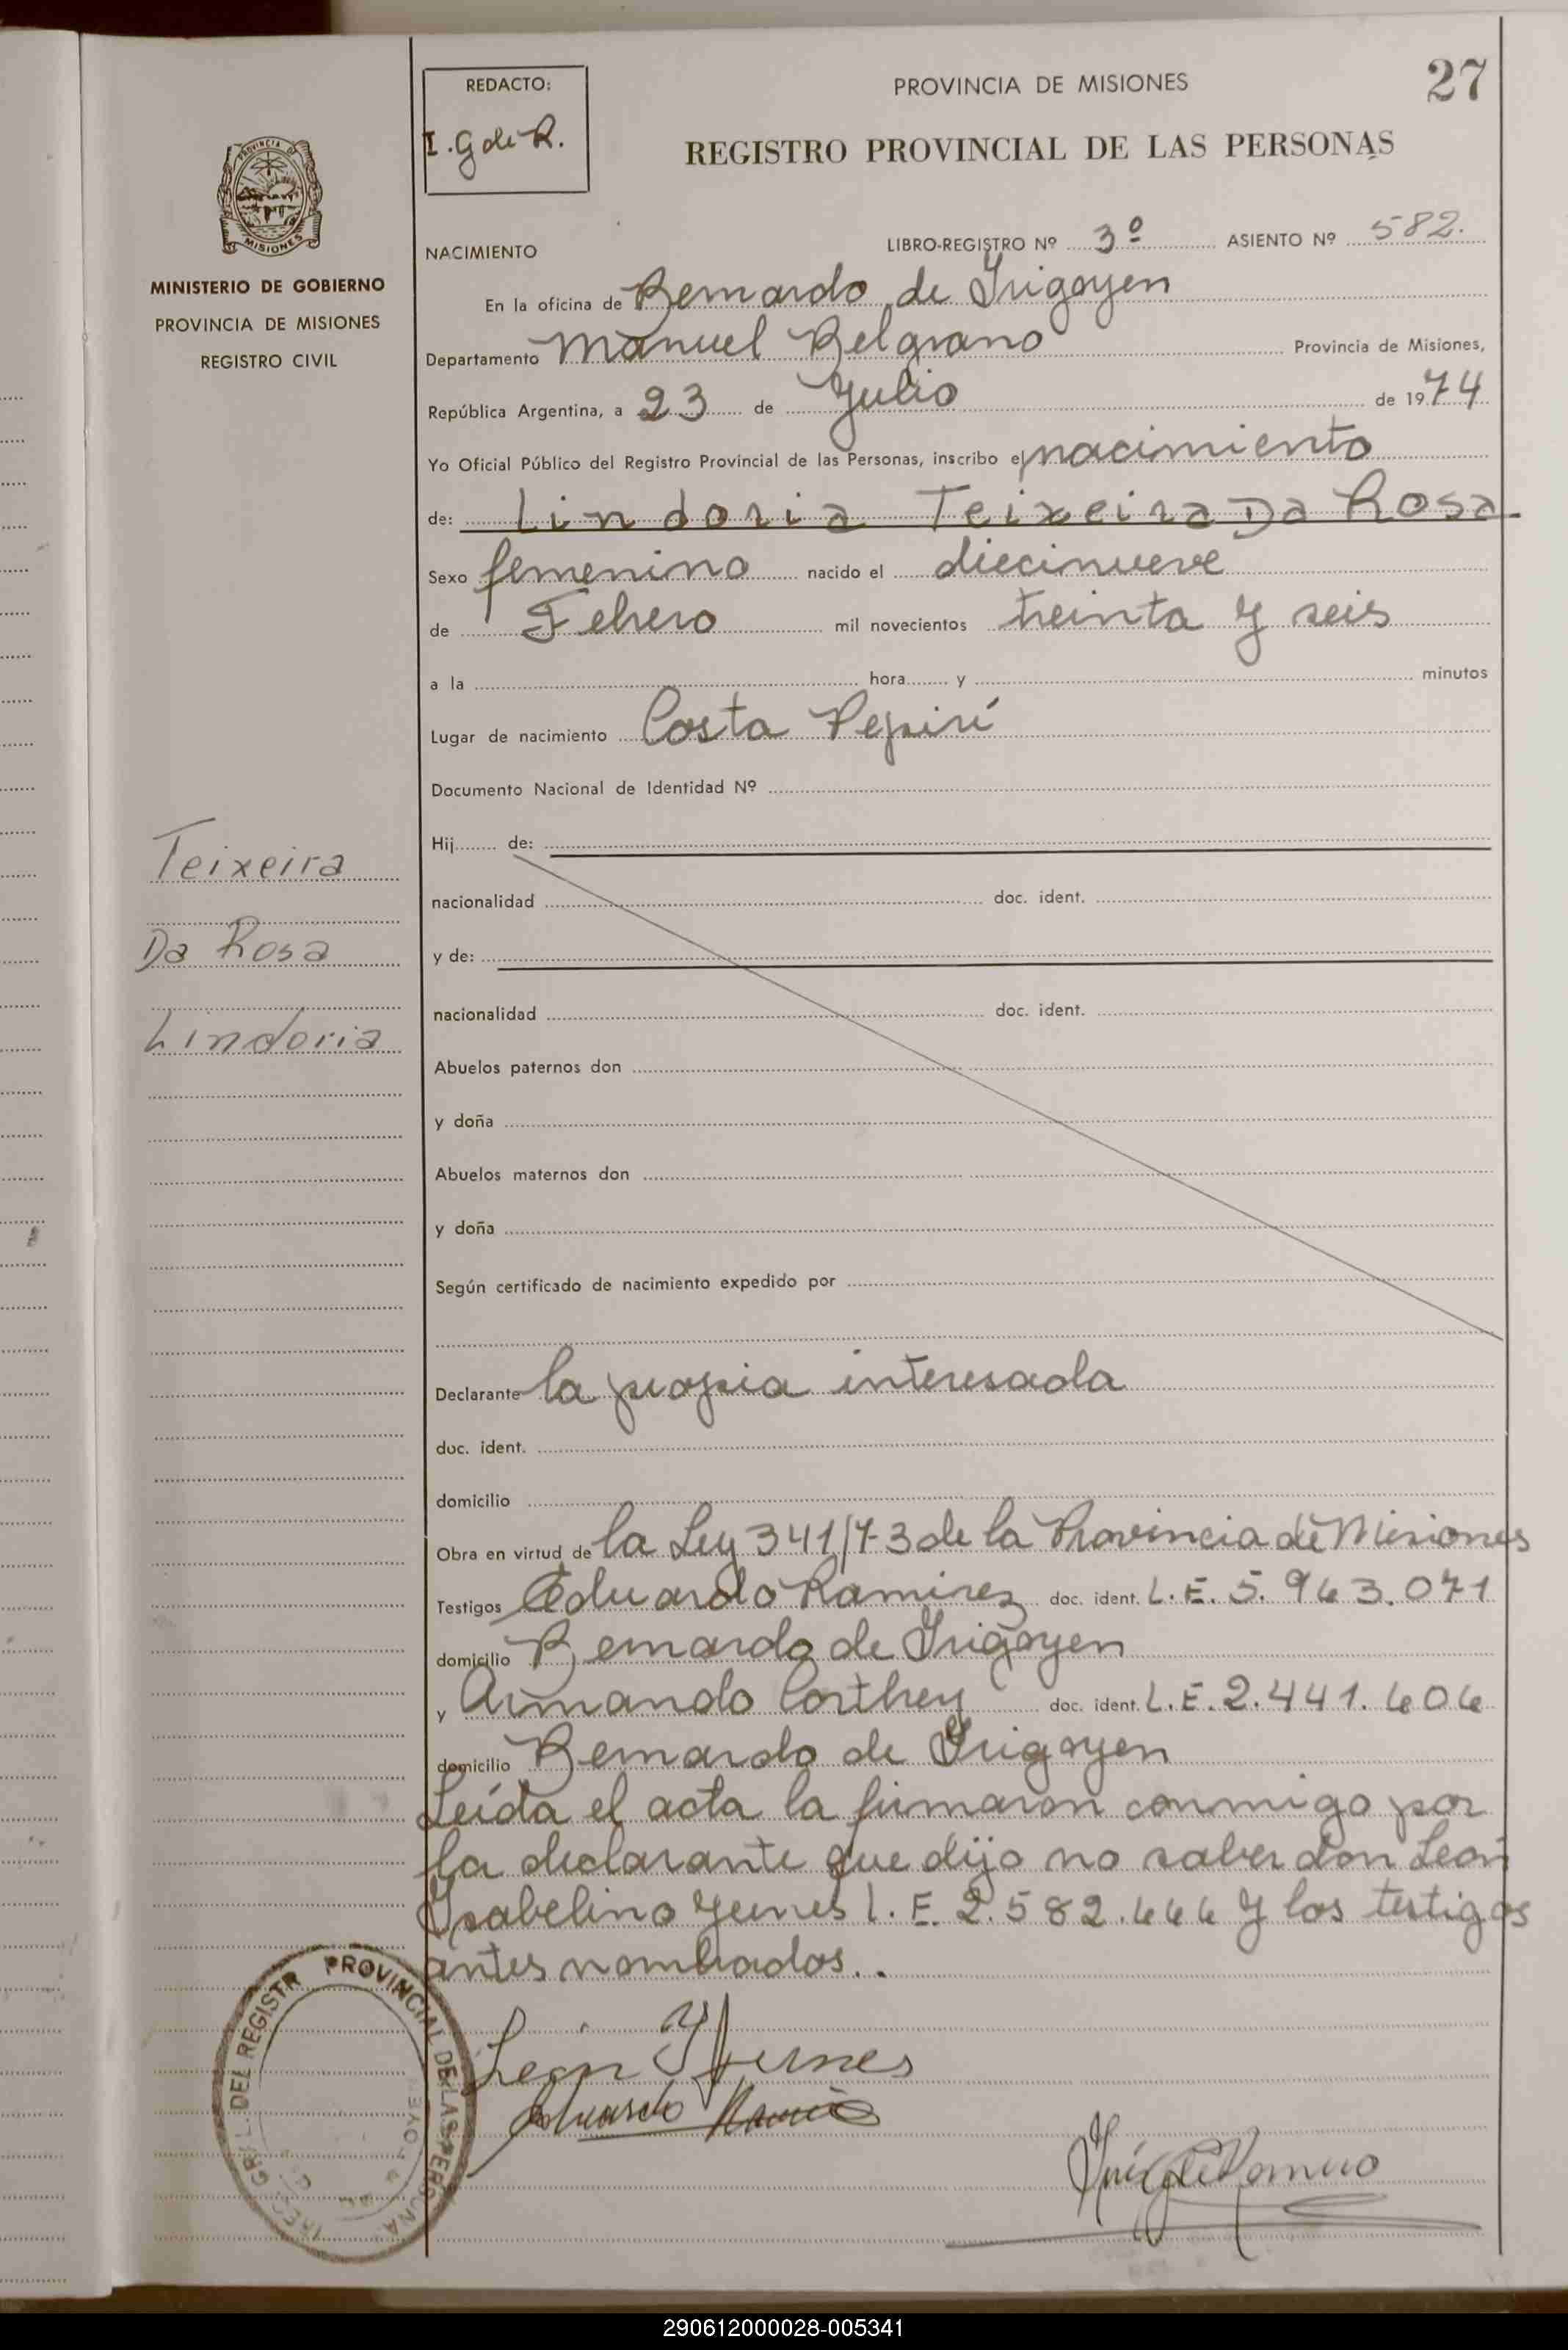 27
REDACTO:
I. G de R.
PROVINCIA DE MISIONES
REGISTRO PROVINCIAL DE LAS PERSONAS
PROVINCIA DE
MISIONES
MINISTERIO DE GOBIERNO
PROVINCIA DE MISIONES
REGISTRO CIVIL
NACIMIENTO LIBRO-REGISTRO Nº 3º ASIENTO Nº 582.
En la oficina de Bernardo de Irigoyen
Departamento Manuel Belgrano Provincia de Misiones,
República Argentina, a 23 de Julio de 1974
Yo Oficial Público del Registro Provincial de las Personas, inscribo el nacimiento
de: Lindoria Teixeira Da Rosa
Sexo femenino nacido el diecinueve
de Febrero mil novecientos treinta y seis
a la hora y minutos
Lugar de nacimiento Costa Pepirí
Documento Nacional de Identidad Nº
Hij de:
nacionalidad doc. ident.
y de:
nacionalidad doc. ident.
Abuelos paternos don
y doña
Abuelos maternos don
y doña
Según certificado de nacimiento expedido por
Teixeira
Da Rosa
Lindoria
Declarante la propia interesada
doc. ident.
domicilio
Obra en virtud de la Ley 341/73 de la Provincia de Misiones
Testigos Eduardo Ramirez doc. ident. L.E. 5.963.071
domicilio Bernardo de Irigoyen
y Armando Corthey doc. ident. L.E. 2.441.606
domicilio Bernardo de Irigoyen
Leída el acta la firmaron conmigo por
la declarante que dijo no saber don León
Isabelino Yunes L.E. 2.582.666 y los testigos
antes nombrados..
León Y
Eduardo
DEL REGISTR PROVINCIAL DE LAS PERSONA
290612000028-005341